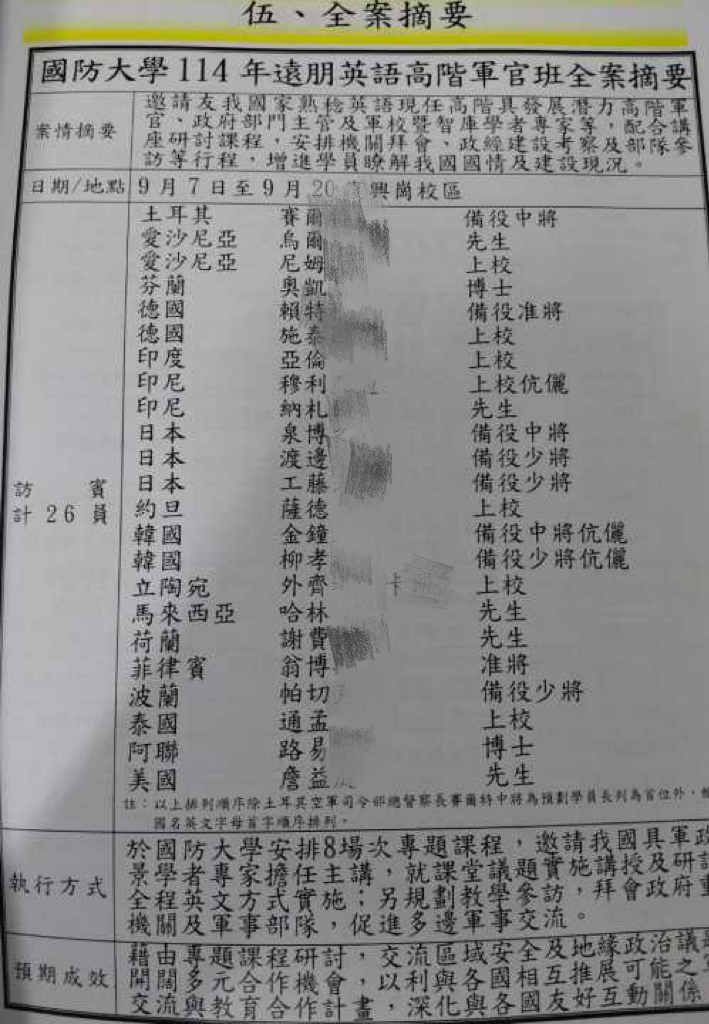 伍、全案摘要
國防大學114年遠朋英語高階軍官班全案摘要
案情摘要
邀請友我國家熟稔英語現任高階具發展潛力高階軍
官、政府部門主管及軍校暨智庫學者專家等,配合講
座研討課程,安排機關拜會、政經建設考察及部隊參
訪等行程,增進學員瞭解我國國情及建設現況。
日期/地點 9月7日至9月20 興崗校區
訪賓
計26員
土耳其 賽爾 備役中將
愛沙尼亞 烏爾 先生
愛沙尼亞 尼姆 上校
芬蘭 奧凱 博士
德國 賴特 備役准將
德國 施泰 上校
印度 亞倫 上校
印尼 穆利 上校伉儷
印尼 納札 先生
日本 泉博 備役中將
日本 渡邊 備役少將
日本 工藤 備役少將
約旦 薩德 上校
韓國 金鐘 備役中將伉儷
韓國 柳孝 備役少將伉儷
立陶宛 外齊 卡 上校
馬來西亞 哈林 先生
荷蘭 謝費 先生
菲律賓 翁博 准將
波蘭 帕切 備役少將
泰國 通孟 上校
阿聯 路易 博士
美國 詹益 先生
註:以上排列順序除土耳其空軍司令部總督察長賽爾特中將為預劃學員長列為首位外,
國名英文字母首字順序排列。
執行方式
於國防大學安排8場次專題課程,邀請我國具軍政
景學者專家擔任主講,就課堂議題實施講授及研
全程英文方式實施;另規劃教學參訪,拜會政府重
機關及軍事部隊,促進多邊軍事交流。
預期成效
藉由專題課程研討,交流區域安全及地緣政治議
開闊多元合作機會,以利與各國相互推展可能之軍
交流與教育合作計畫,深化與各國友好互動關係